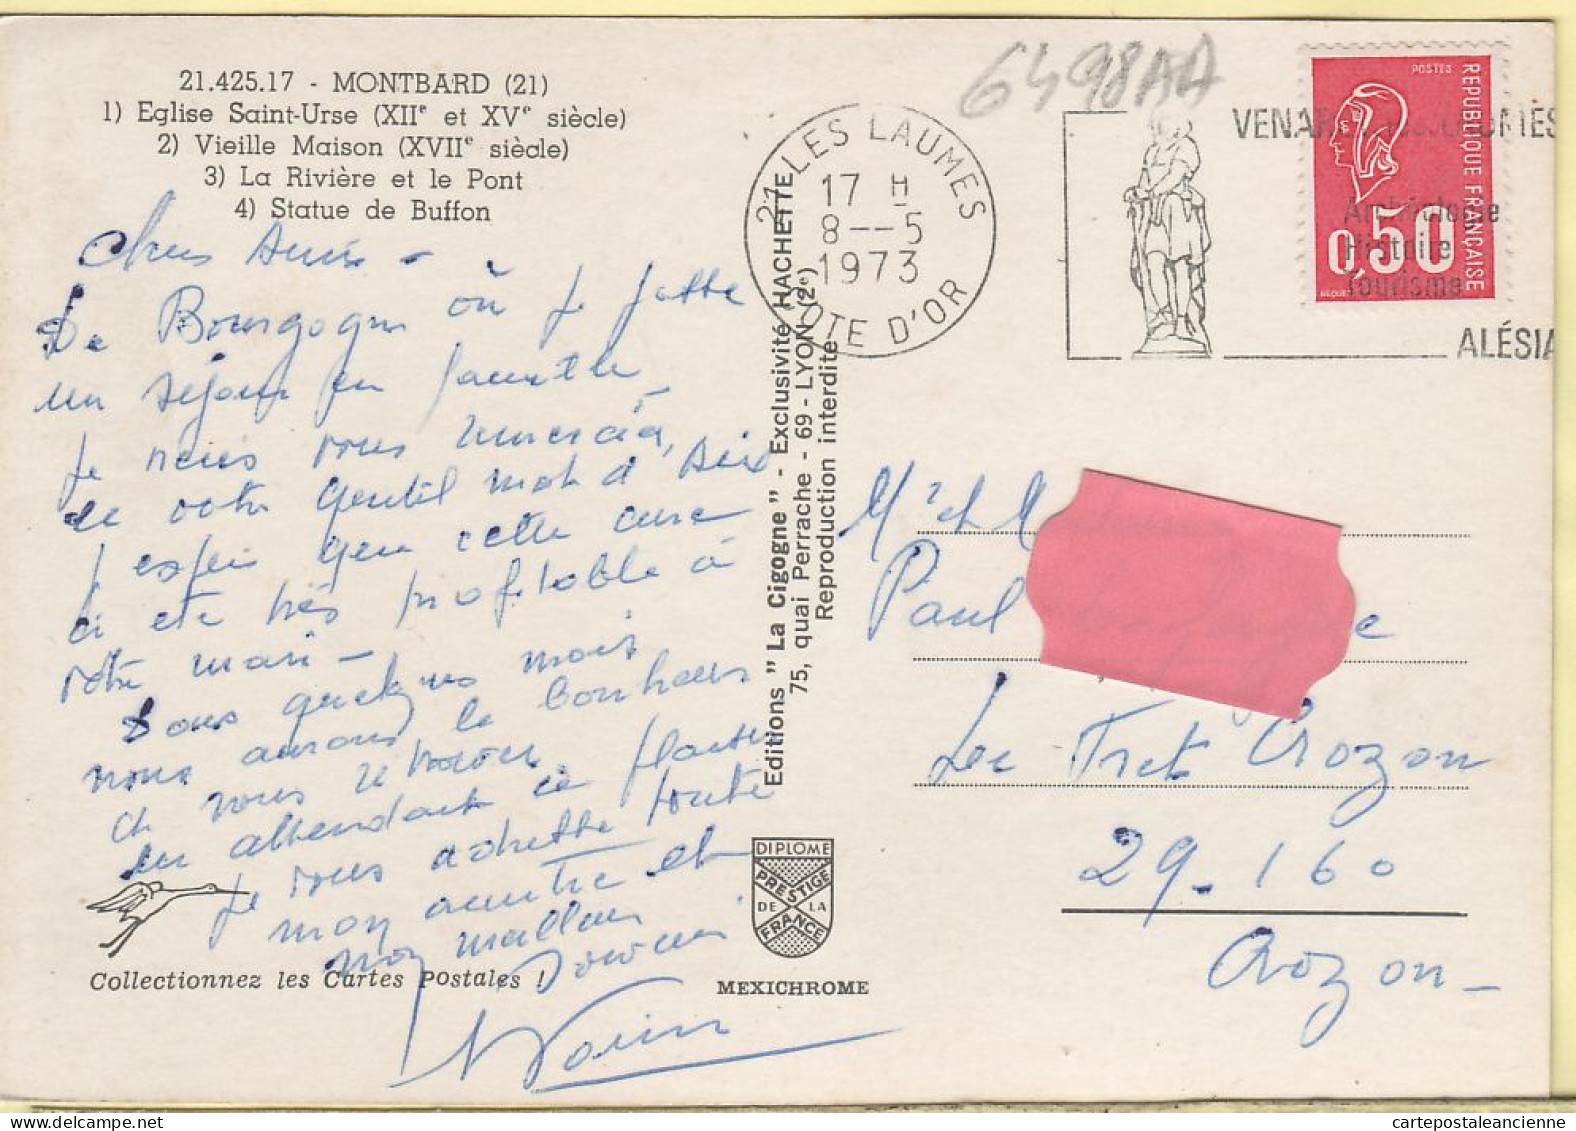 21.425.17 - MONTBARD (21)
1) Eglise Saint-Urse (XIIe et XVe siècle)
2) Vieille Maison (XVIIe siècle)
3) La Rivière et le Pont
4) Statue de Buffon
Chers Amis -
De Bourgogne où je passe
un séjour en famille
je viens vous remercier
de votre gentil mot d'
j'espère que cette cure
a été très profitable à
votre mari -
Dans quelques mois
nous aurons le bonheur
de vous revoir.
en attendant ce plaisir
je vous adresse toute
mon amitié et
mon meilleur
souvenir
Collectionnez les Cartes Postales !
Editions "La Cigogne" - Exclusivité HACHETTE
75, quai Perrache - 69 - LYON (2e)
Reproduction interdite
DIPLOME
PRESTIGE
DE LA
FRANCE
MEXICHROME
6498AA
21 LES LAUMES
17 H
8--5
1973
COTE D'OR
VENAREY LES LAUMES
Archéologie
Histoire
Tourisme
ALÉSIA
POSTES
REPUBLIQUE FRANÇAISE
0,50
BEQUET
Mr et M
Paul
Le Fret Crozon
29.160
Crozon -
cartepostaleancienne